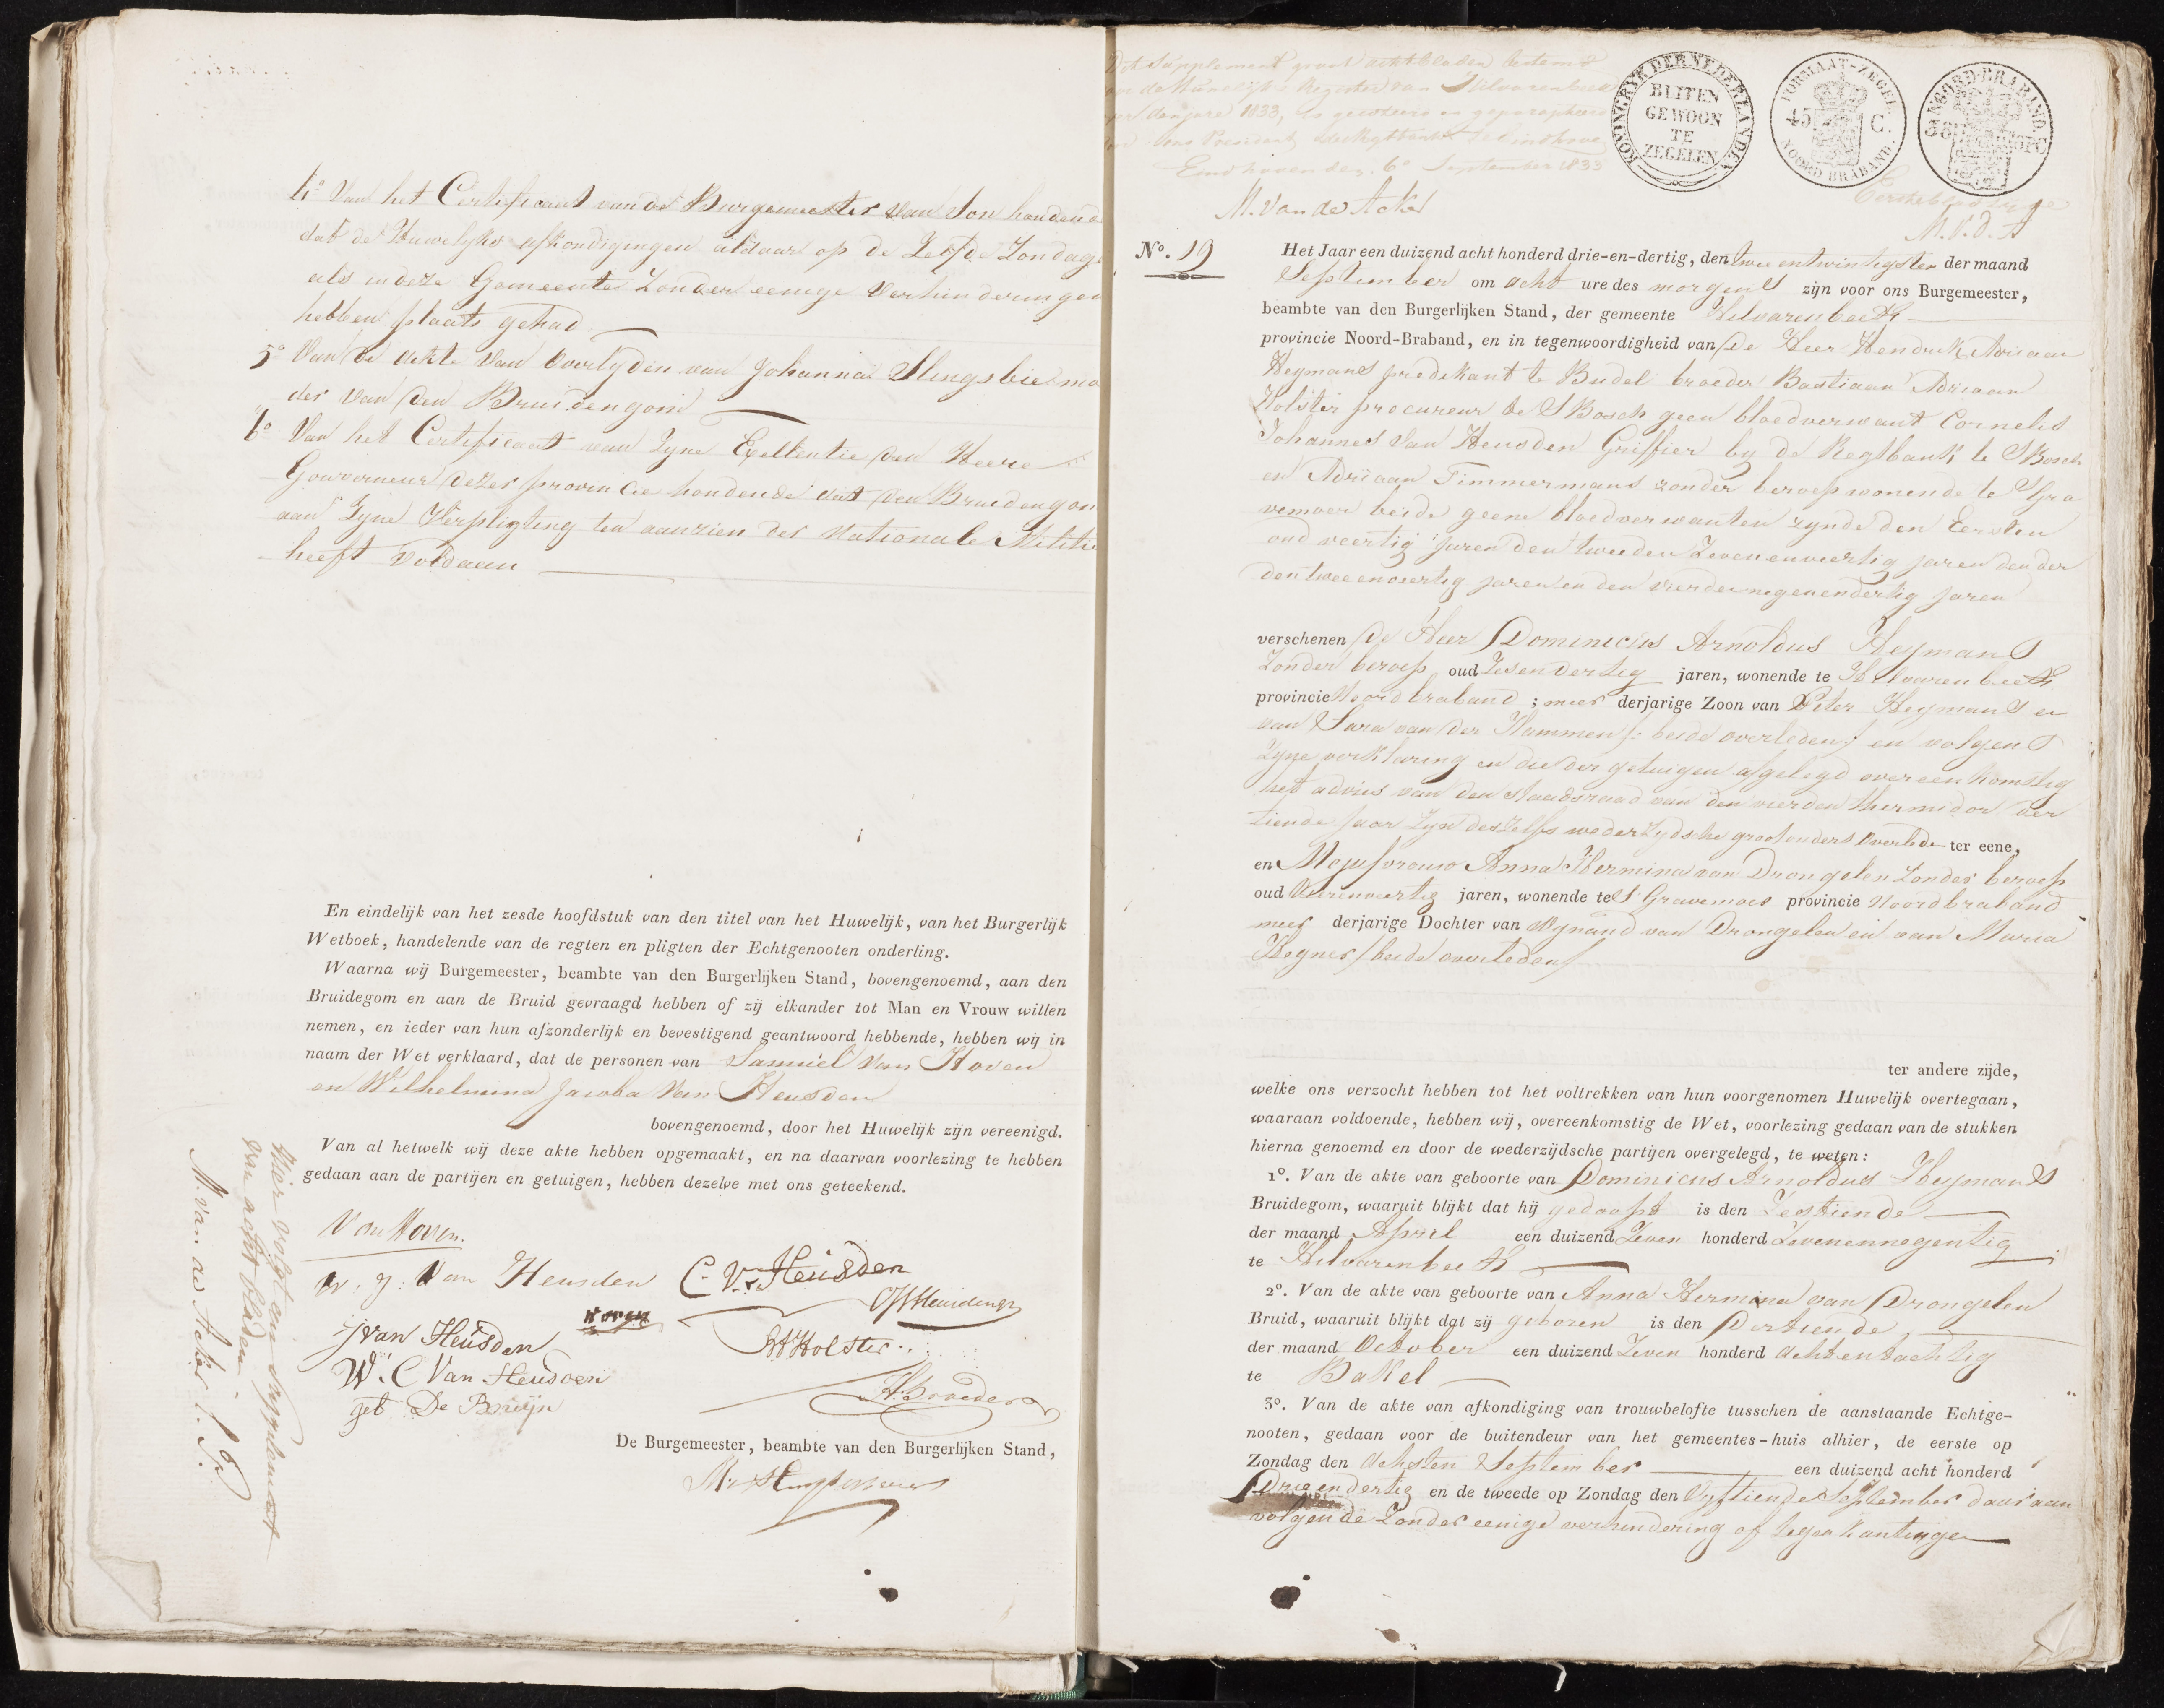 4o Van het Certificaat van de Burgemeester van Son houdende
dat de Huwelyks afkondigingen aldaar op de Zelfde Zondage
als in deze Gemeente Zonder eenige verhinderingen
hebben plaats gehad
5o Van de akte van overlyden van Johanna Slingsbie moe
der van den Bruidengom
6o Van het Certificaat van Zyne Exellentie den Heere
Gouverneur dezer provincie houdende dat den Bruidengom
aan Zyne Verpligting ten aanzien der Nationale Militie
heeft voldaan
En eindelijk van het zesde hoofdstuk van den titel van het Huwelijk, van het Burgerlijk
Wetboek, handelende van de regten en pligten der Echtgenooten onderling.
Waarna wij Burgemeester, beambte van den Burgerlijken Stand, bovengenoemd, aan den
Bruidegom en aan de Bruid gevraagd hebben of zij elkander tot Man en Vrouw willen
nemen, en ieder van hun afzonderlijk en bevestigend geantwoord hebbende, hebben wij in
naam der Wet verklaard, dat de personen van Samuel Van Hoven
en Wilhelmina Jacoba Van Heusden
bovengenoemd, door het Huwelijk zijn vereenigd.
Van al hetwelk wij deze akte hebben opgemaakt, en na daarvan voorlezing te hebben
gedaan aan de partijen en getuigen, hebben dezelve met ons geteekend.
Van Hoven.
W. J. Van Heusden C. V. Heusden
Hoven
J van Heusden
A Holster
W. C Van Heusden
H. Broeders
get De Bruijn
De Burgemeester, beambte van den Burgerlijken Stand,
Hier volgt een Supplement
van acht bladen
M. van de Acker
Dit Supplement groot acht bladen
de Huwelijks Register van Hilvarenbeek
den jare 1833, is gecoteerd en geparapheerd
Eindhoven den 6e September 1833
M. Van de Acker
KONINGRYK DER NEDERLANDEN
BUITEN
GEWOON
TE
ZEGELEN
FORMAAT-ZEGEL
45 C.
NOORD BRABAND.
NOORD-BRABAND.
Eerste blad
M. V. D. A
No. 19
Het Jaar een duizend acht honderd drie-en-dertig, den twee entwintigsten der maand
September om acht ure des morgens zijn voor ons Burgemeester,
beambte van den Burgerlijken Stand, der gemeente Hilvarenbeek
provincie Noord-Braband, en in tegenwoordigheid van De Heer Hendrik Adriaan
Heymans predekant te Budel broeder Bastiaan Adriaan
Holster procureur te S Bosch geen bloedverwant Cornelis
Johannes van Heusden Griffier by de Regtbank te S Bosch
en Adriaan Timmermans zonder beroep wonende te S Gra
vemoer beide geene bloedverwanten zynde den Eersten
oud veertig jaren den tweeden Zevenenveertig jaren den der
den tweeenveertig jaren en den vierden negenendertig jaren
verschenen De Heer Dominicus Arnoldus Heymans
Zonder beroep oud Zesendertig jaren, wonende te Hilvarenbeek
provincie Noordbraband ; meer derjarige Zoon van Peter Heymans en
van Sara van der Hammen (: beide overleden) en volgens
Zyne verklaring en die der getuigen afgelegd overeenkomstig
het advies van den Staadsraad van den vierden thermidor der
tiende jaar Zyn deszelfs wederzydsche grootouders overlede ter eene,
en Mejufvrouw Anna Hermina van Drongelen Zonder beroep
oud Vierenveertig jaren, wonende te S Gravemoer provincie Noordbraband
meer derjarige Dochter van Wynand van Drongelen en van Maria
Hegner (beide overleden)
ter andere zijde,
welke ons verzocht hebben tot het voltrekken van hun voorgenomen Huwelijk overtegaan,
waaraan voldoende, hebben wij, overeenkomstig de Wet, voorlezing gedaan van de stukken
hierna genoemd en door de wederzijdsche partijen overgelegd, te weten:
1o. Van de akte van geboorte van Dominicus Arnoldus Heymans
Bruidegom, waaruit blijkt dat hij gedoopt is den Zestiende
der maand April een duizend Zeven honderd Zevenennegentig
te Hilvarenbeek
2o. Van de akte van geboorte van Anna Hermina van Drongelen
Bruid, waaruit blijkt dat zij geboren is den Dertiende
der maand October een duizend Zeven honderd Achtentachtig
te Bakel
3o. Van de akte van afkondiging van trouwbelofte tusschen de aanstaande Echtge-
nooten, gedaan voor de buitendeur van het gemeentes-huis alhier, de eerste op
Zondag den Achsten September een duizend acht honderd
Drieendertig en de tweede op Zondag den Vyftiende September daaraan
volgende Zonder eenige verhindering of tegenkantingen